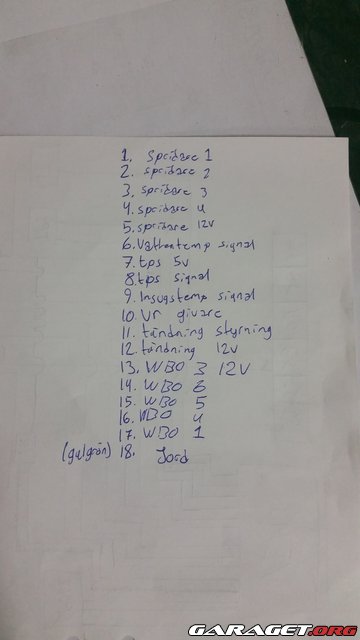 1. spridare 1
2. spridare 2
3. spridare 3
4. spridare 4
5. spridare 12v
6. Vattentemp signal
7. tps 5v
8. tps signal
9. Insugstemp signal
10. Vr givare
11. tändning styrning
12. tändning 12v
13. WBO 3 12V
14. WBO 6
15. WBO 5
16. WBO 4
17. WBO 1
(gulgrön) 18. Jord
GARAGET.ORG